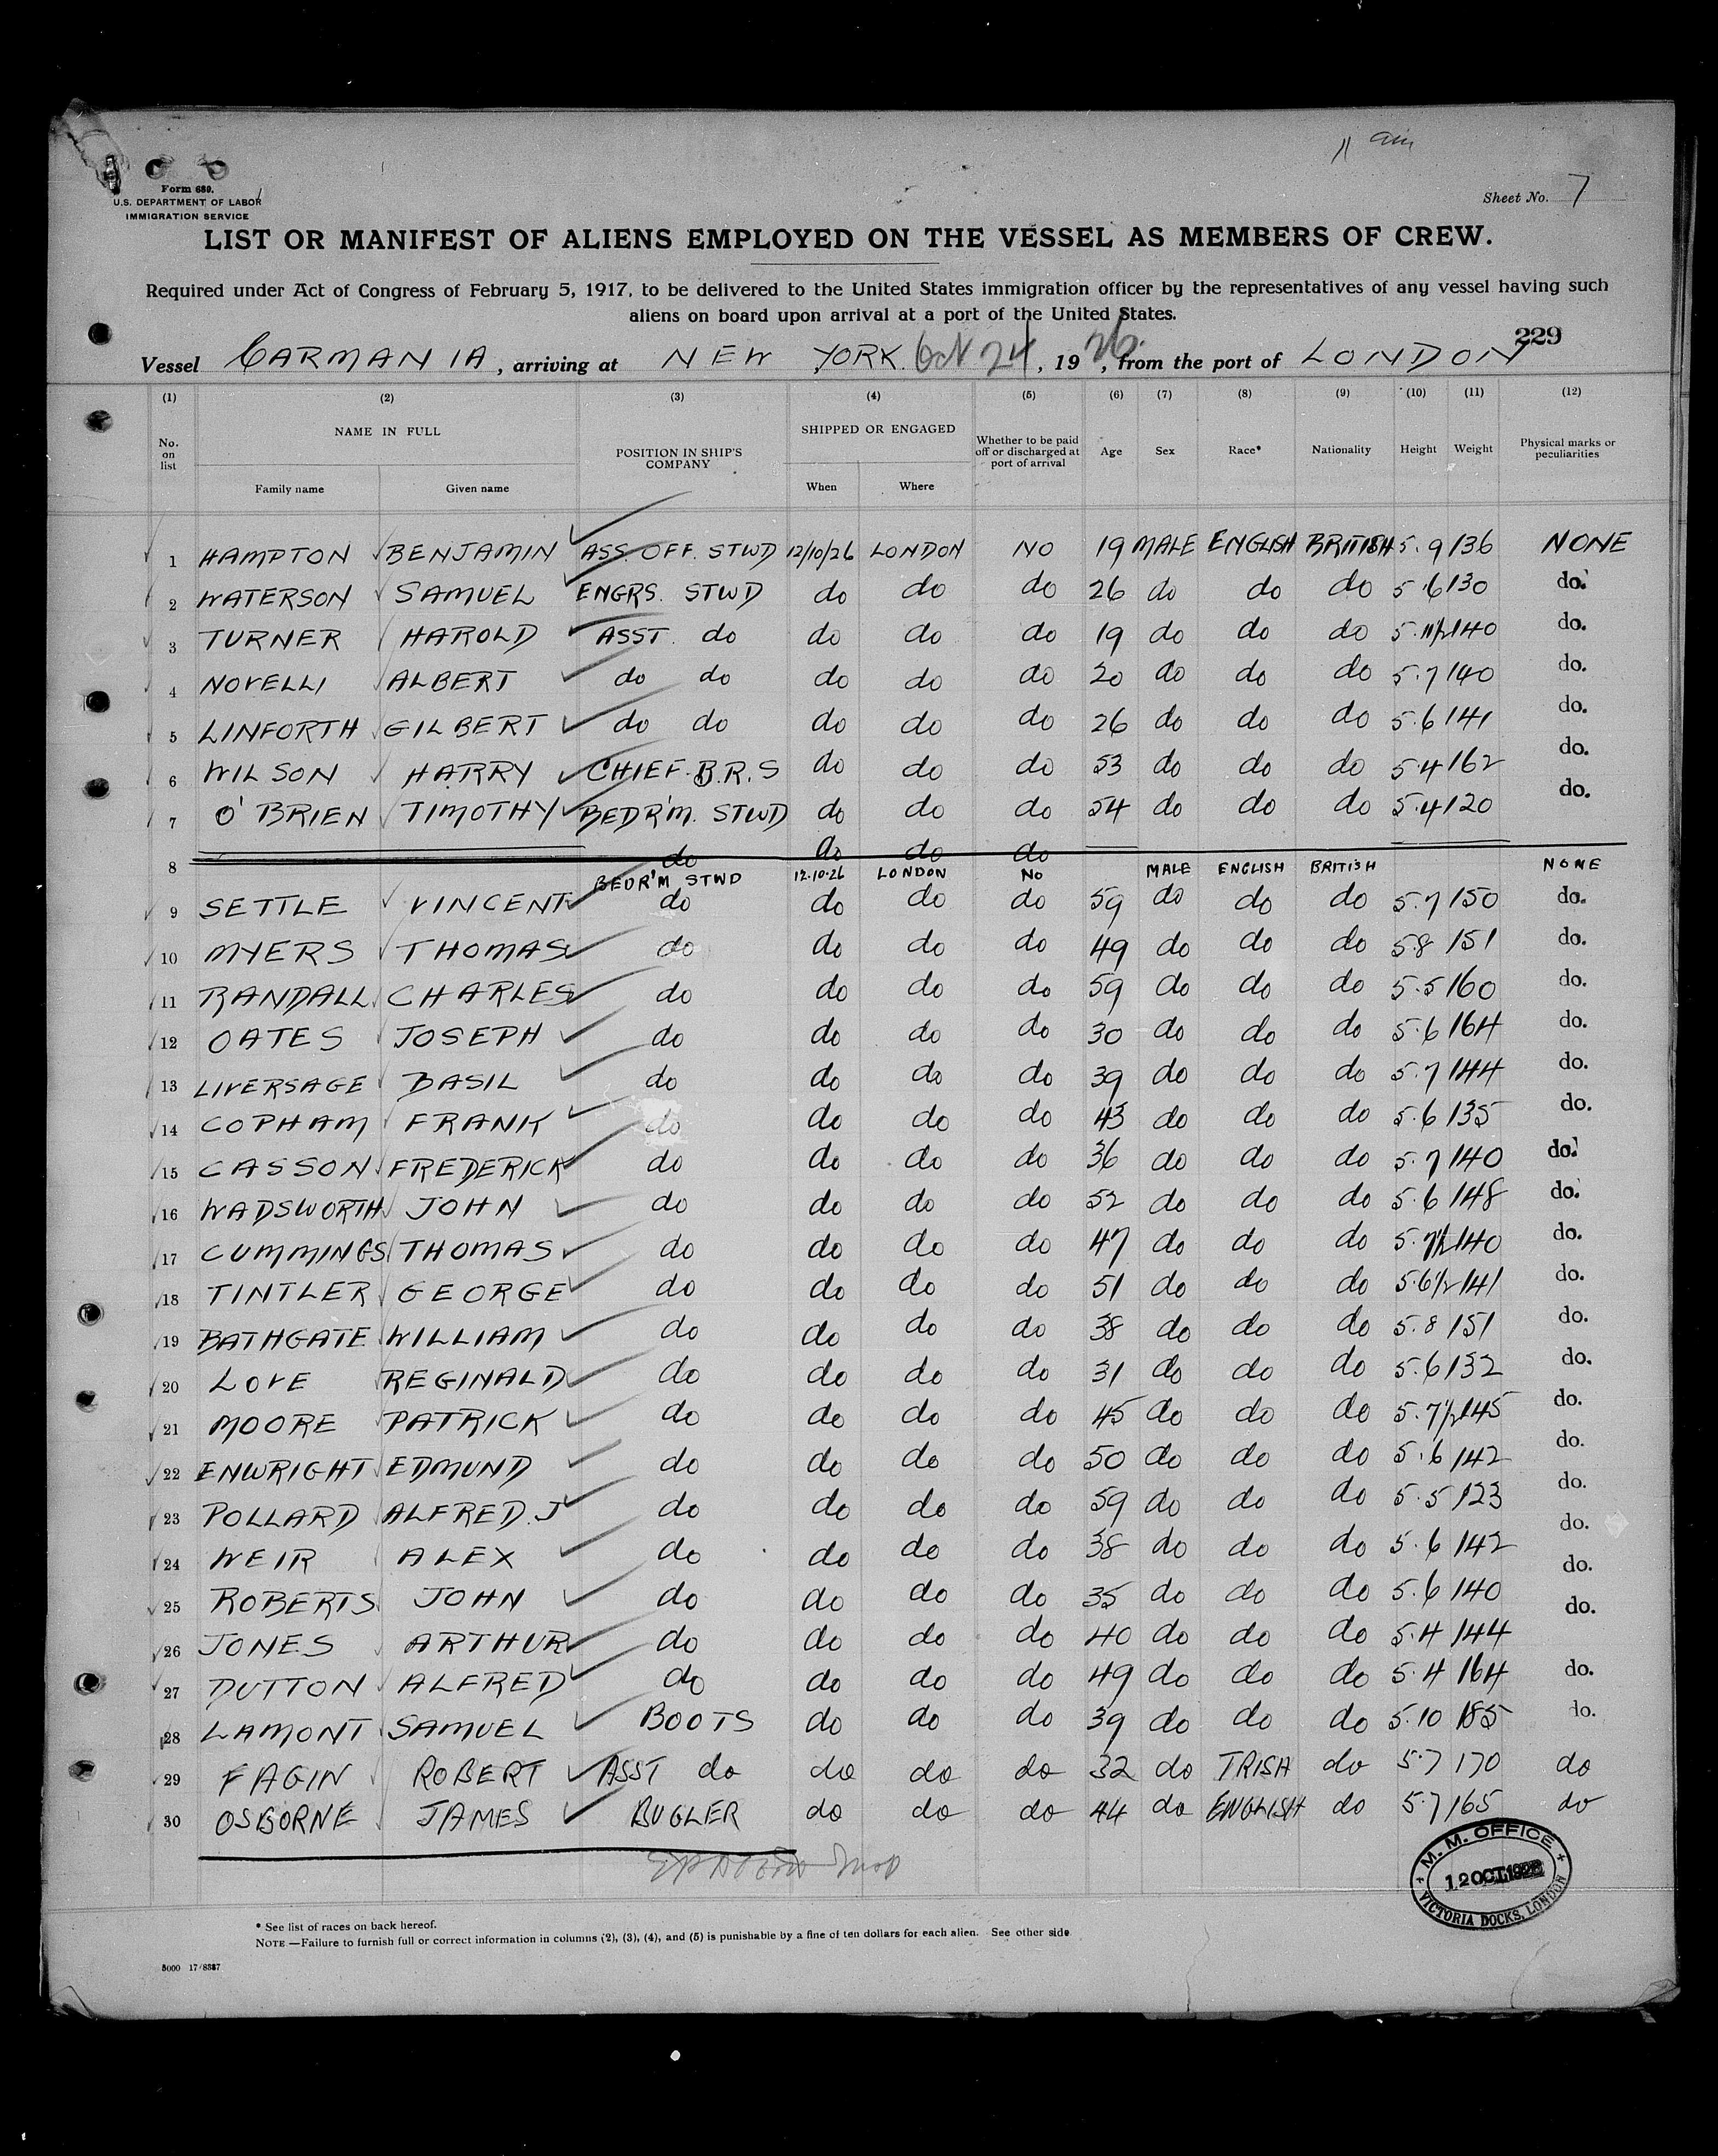 11 am
Form 680.
U.S. DEPARTMENT OF LABOR
IMMIGRATION SERVICE
Sheet No. 7
LIST OR MANIFEST OF ALIENS EMPLOYED ON THE VESSEL AS MEMBERS OF CREW.
Required under Act of Congress of February 5, 1917, to be delivered to the United States immigration officer by the representatives of any vessel having such
aliens on board upon arrival at a port of the United States.
229
Vessel CARMANIA, arriving at NEW YORK. Oct 24, 1926, from the port of LONDON
(1) (2) (3) (4) (5) (6) (7) (8) (9) (10) (11) (12)
No. on list NAME IN FULL POSITION IN SHIP'S COMPANY SHIPPED OR ENGAGED Whether to be paid off or discharged at port of arrival Age Sex Race* Nationality Height Weight Physical marks or peculiarities
Family name Given name When Where
1 HAMPTON BENJAMIN ASS. OFF. STWD 12/10/26 LONDON NO 19 MALE ENGLISH BRITISH 5.9 136 NONE
2 WATERSON SAMUEL ENGRS. STWD do do do 26 do do do 5.6 130 do.
3 TURNER HAROLD ASST. do do do do 19 do do do 5.11½ 140 do.
4 NOVELLI ALBERT do do do do do 20 do do do 5.7 140 do.
5 LINFORTH GILBERT do do do do do 26 do do do 5.6 141 do.
6 WILSON HARRY CHIEF. B.R.S do do do 53 do do do 5.4 162 do.
7 O'BRIEN TIMOTHY BEDR'M. STWD do do do 54 do do do 5.4 120 do.
8 do do do do
BEDR'M STWD 12.10.26 LONDON NO MALE ENGLISH BRITISH NONE
9 SETTLE VINCENT do do do do 59 do do do 5.7 150 do.
10 MYERS THOMAS do do do do 49 do do do 5.8 151 do.
11 RANDALL CHARLES do do do do 59 do do do 5.5 160 do.
12 OATES JOSEPH do do do do 30 do do do 5.6 164 do.
13 LIVERSAGE BASIL do do do do 39 do do do 5.7 144 do.
14 COPHAM FRANK do do do do 43 do do do 5.6 135 do.
15 CASSON FREDERICK do do do do 36 do do do 5.7 140 do.
16 WADSWORTH JOHN do do do do 52 do do do 5.6 148 do.
17 CUMMINGS THOMAS do do do do 47 do do do 5.7½ 140 do.
18 TINTLER GEORGE do do do do 51 do do do 5.6½ 141 do.
19 BATHGATE WILLIAM do do do do 38 do do do 5.8 151 do.
20 LOVE REGINALD do do do do 31 do do do 5.6 132 do.
21 MOORE PATRICK do do do do 45 do do do 5.7½ 145 do.
22 ENWRIGHT EDMUND do do do do 50 do do do 5.6 142 do.
23 POLLARD ALFRED. J do do do do 59 do do do 5.5 123 do.
24 WEIR ALEX do do do do 38 do do do 5.6 142 do.
25 ROBERTS JOHN do do do do 35 do do do 5.6 140 do.
26 JONES ARTHUR do do do do 40 do do do 5.4 144 do.
27 DUTTON ALFRED do do do do 49 do do do 5.4 164 do.
28 LAMONT SAMUEL BOOTS do do do 39 do do do 5.10 185 do.
29 FAGIN ROBERT ASST do do do do 32 do IRISH do 5.7 170 do
30 OSBORNE JAMES BUGLER do do do 44 do ENGLISH do 5.7 165 do
M. M. OFFICE
12 OCT. 1926
VICTORIA DOCKS, LONDON
* See list of races on back hereof.
NOTE.—Failure to furnish full or correct information in columns (2), (3), (4), and (5) is punishable by a fine of ten dollars for each alien. See other side
5000 17/8387